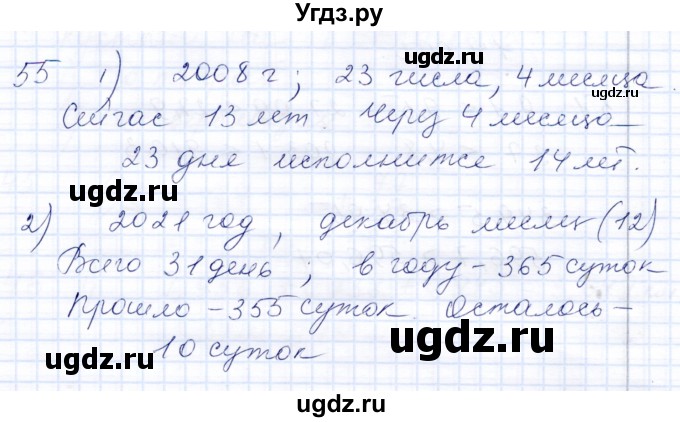 Угдз.ру
55 1) 2008 г; 23 числа, 4 месяца.
Сейчас 13 лет. Через 4 месяца
23 дня исполнится 14 лет.
2) 2021 год, декабрь месяц (12)
Всего 31 день; в году - 365 суток
Прошло - 355 суток. Осталось -
10 суток
ugdz.ru
ugdz.ru
ugdz.ru
ugdz.ru
ugdz.ru
ugdz.ru
ugdz.ru
ugdz.ru
ugdz.ru